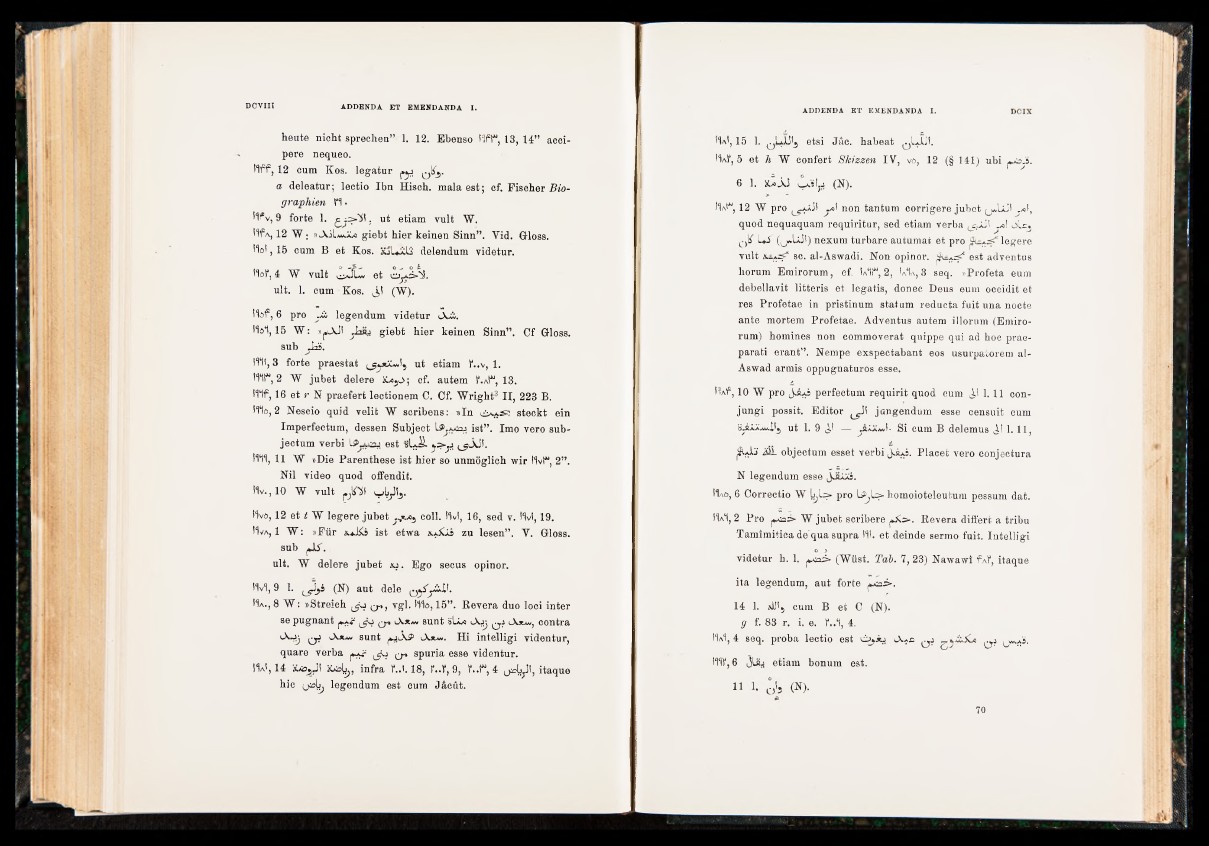 DCVIII ADDENDA ET EMENDANDA I.
heute nicht sprechen” l. 12. Ebenso ١٩٤٣, 13, 14” acci-
pere nequeo.
١٩٤٤, 12 cum Kos. legatur وكان يوم.
a deleatur; lectio Ibn Hisch. mala est; cf. Fischer Bio-
graphien ٢٩.
١٩٤٧, 9 forte l. والاجرع, ut etiam vult W.
١٩٤٨, 12 W: »مسانـد giebt hier keinen Sinn”. Vid. Gloss.
١٩٥١, 15 cum B et Kos. ثلثمائة delendum videtur.
١٩٥٢, 4 W vult سَأَلْتَ et لأُخْبِرْتَ.
ult. l. cum Kos. إلى (W).
١٩٥٤, 6 pro شر legendum videtur شدّ.
١٩٥٦, 15 W: »يقطر الدم giebt hier keinen Sinn”. Cf Gloss.
sub قطر.
١٩٦١, 3 forte praestat واستغوى ut etiam ٢٠٠٧, 1.
١٩٦٣, 2 W jubet delere دومة; cf. autem ٢٠٨٣, 13.
١٩٦٤, 16 et r N praefert lectionem C. Cf. Wright³ II, 223 B.
١٩٦٥, 2 Nescio quid velit W scribens: »In steckt ein
Imperfectum, dessen Subject يصيرها ist”. Imo vero sub-
jectum verbi يصيرها est الذى يرجو الحياة.
١٩٦٦, 11 W »Die Parenthese ist hier so unmöglich wir ١٩٧٣, 2”.
Nil video quod offendit.
١٩٧٠, 10 W vult والرباب الاكارم.
١٩٧٥, 12 et t W legere jubet ومعمر coll. ١٩٧١, 16, sed v. ١٩٧١, 19.
١٩٧٨, 1 W: »Für فكلمه ist etwa فنكبه zu lesen”. V. Gloss.
sub كلم.
ult. W delere jubet به. Ego secus opinor.
١٩٧٩, 9 l. فولّى (N) aut dele المشركون.
١٩٨٠, 8 W: »Streich من بنى, vgl. ١٩٦٥, 15”. Revera duo loci inter
se pugnant سعد من بنى تميم sunt سعد بن زيد مناة, contra
سعد بن زيد sunt سعد هذيم. Hi intelligi videntur,
quare verba من بنى تميم spuria esse videntur.
١٩٨١, 14 رياضة الروضة, infra ٢٠٠١, 18, ٢٠٠٢, 9, ٢٠٠٣, 4 الرياض, itaque
hic رياض legendum est cum Jâcût.
ADDENDA ET EMENDANDA I. DCIX
١٩٨١, 15 l. واللّبان etsi Jâc. habeat اللّبان.
١٩٨٢, 5 et h W confert Skizzen IV, ٧٥, 12 (§ 141) ubi وقرضم.
6 l. يراقبْ لذمّة (N).
١٩٨٣, 12 W pro امر النبى non tantum corrigere jubet امر الناس,
quod nequaquam requiritur, sed etiam verba وعلى امر النبى
(الناس) كما كان nexum turbare autumat et pro كجيش legere
vult كمجيئه sc. al-Aswadi. Non opinor. كجيش est adventus
horum Emirorum, cf. ١٨٦٣, 2, ١٨٦٨, 3 seq. »Profeta eum
debellavit litteris et legatis, donec Deus eum occidit et
res Profetae in pristinum statum reducta fuit una nocte
ante mortem Profetae. Adventus autem illorum (Emiro-
rum) homines non commoverat quippe qui ad hoc prae-
parati erant”. Nempe exspectabant eos usurpatorem al-
Aswad armis oppugnaturos esse.
١٩٨٤, 10 W pro فيقلّ perfectum requirit quod cum الى l. 11 con-
jungi possit. Editor الى jungendum esse censuit cum
والمستنفرة ut l. 9 الى — استنفر. Si cum B delemus الى l. 11,
objectum esset verbi فيقلّ. Placet vero conjectura
N legendum esse فتنقّل.
١٩٨٥, 6 Correctio W جاريا pro جارها homoioteleutum pessum dat.
١٩٨٦, 2 Pro خضّم W jubet scribere حكم. Revera differt a tribu
Tamîmitica de qua supra ١٩١٠ et deinde sermo fuit. Intelligi
videtur h. l. خُضْم (Wüst. Tab. 7, 23) Nawawî ٤٨٢, itaque
ita legendum, aut forte خَضَم.
14 l. والله cum B et C (N).
y f. 83 r, i. e. ٢٠٠٦, 4.
١٩٨٩, 4 seq. proba lectio est قيس بن مكشوح بن عبد يغوث.
١٩٩٢, 6 يقال etiam bonum est.
11 l. وإنْ (N).
70